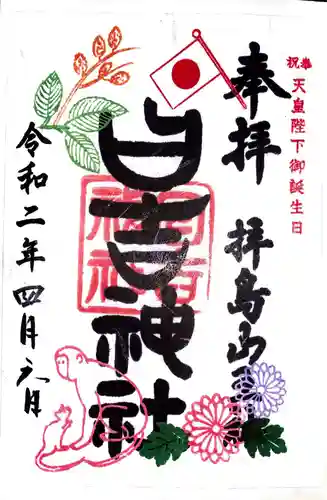 奉祝 天皇陛下御誕生日
奉拝 拝島山王
日吉神社
日吉神社
令和二年四月六日